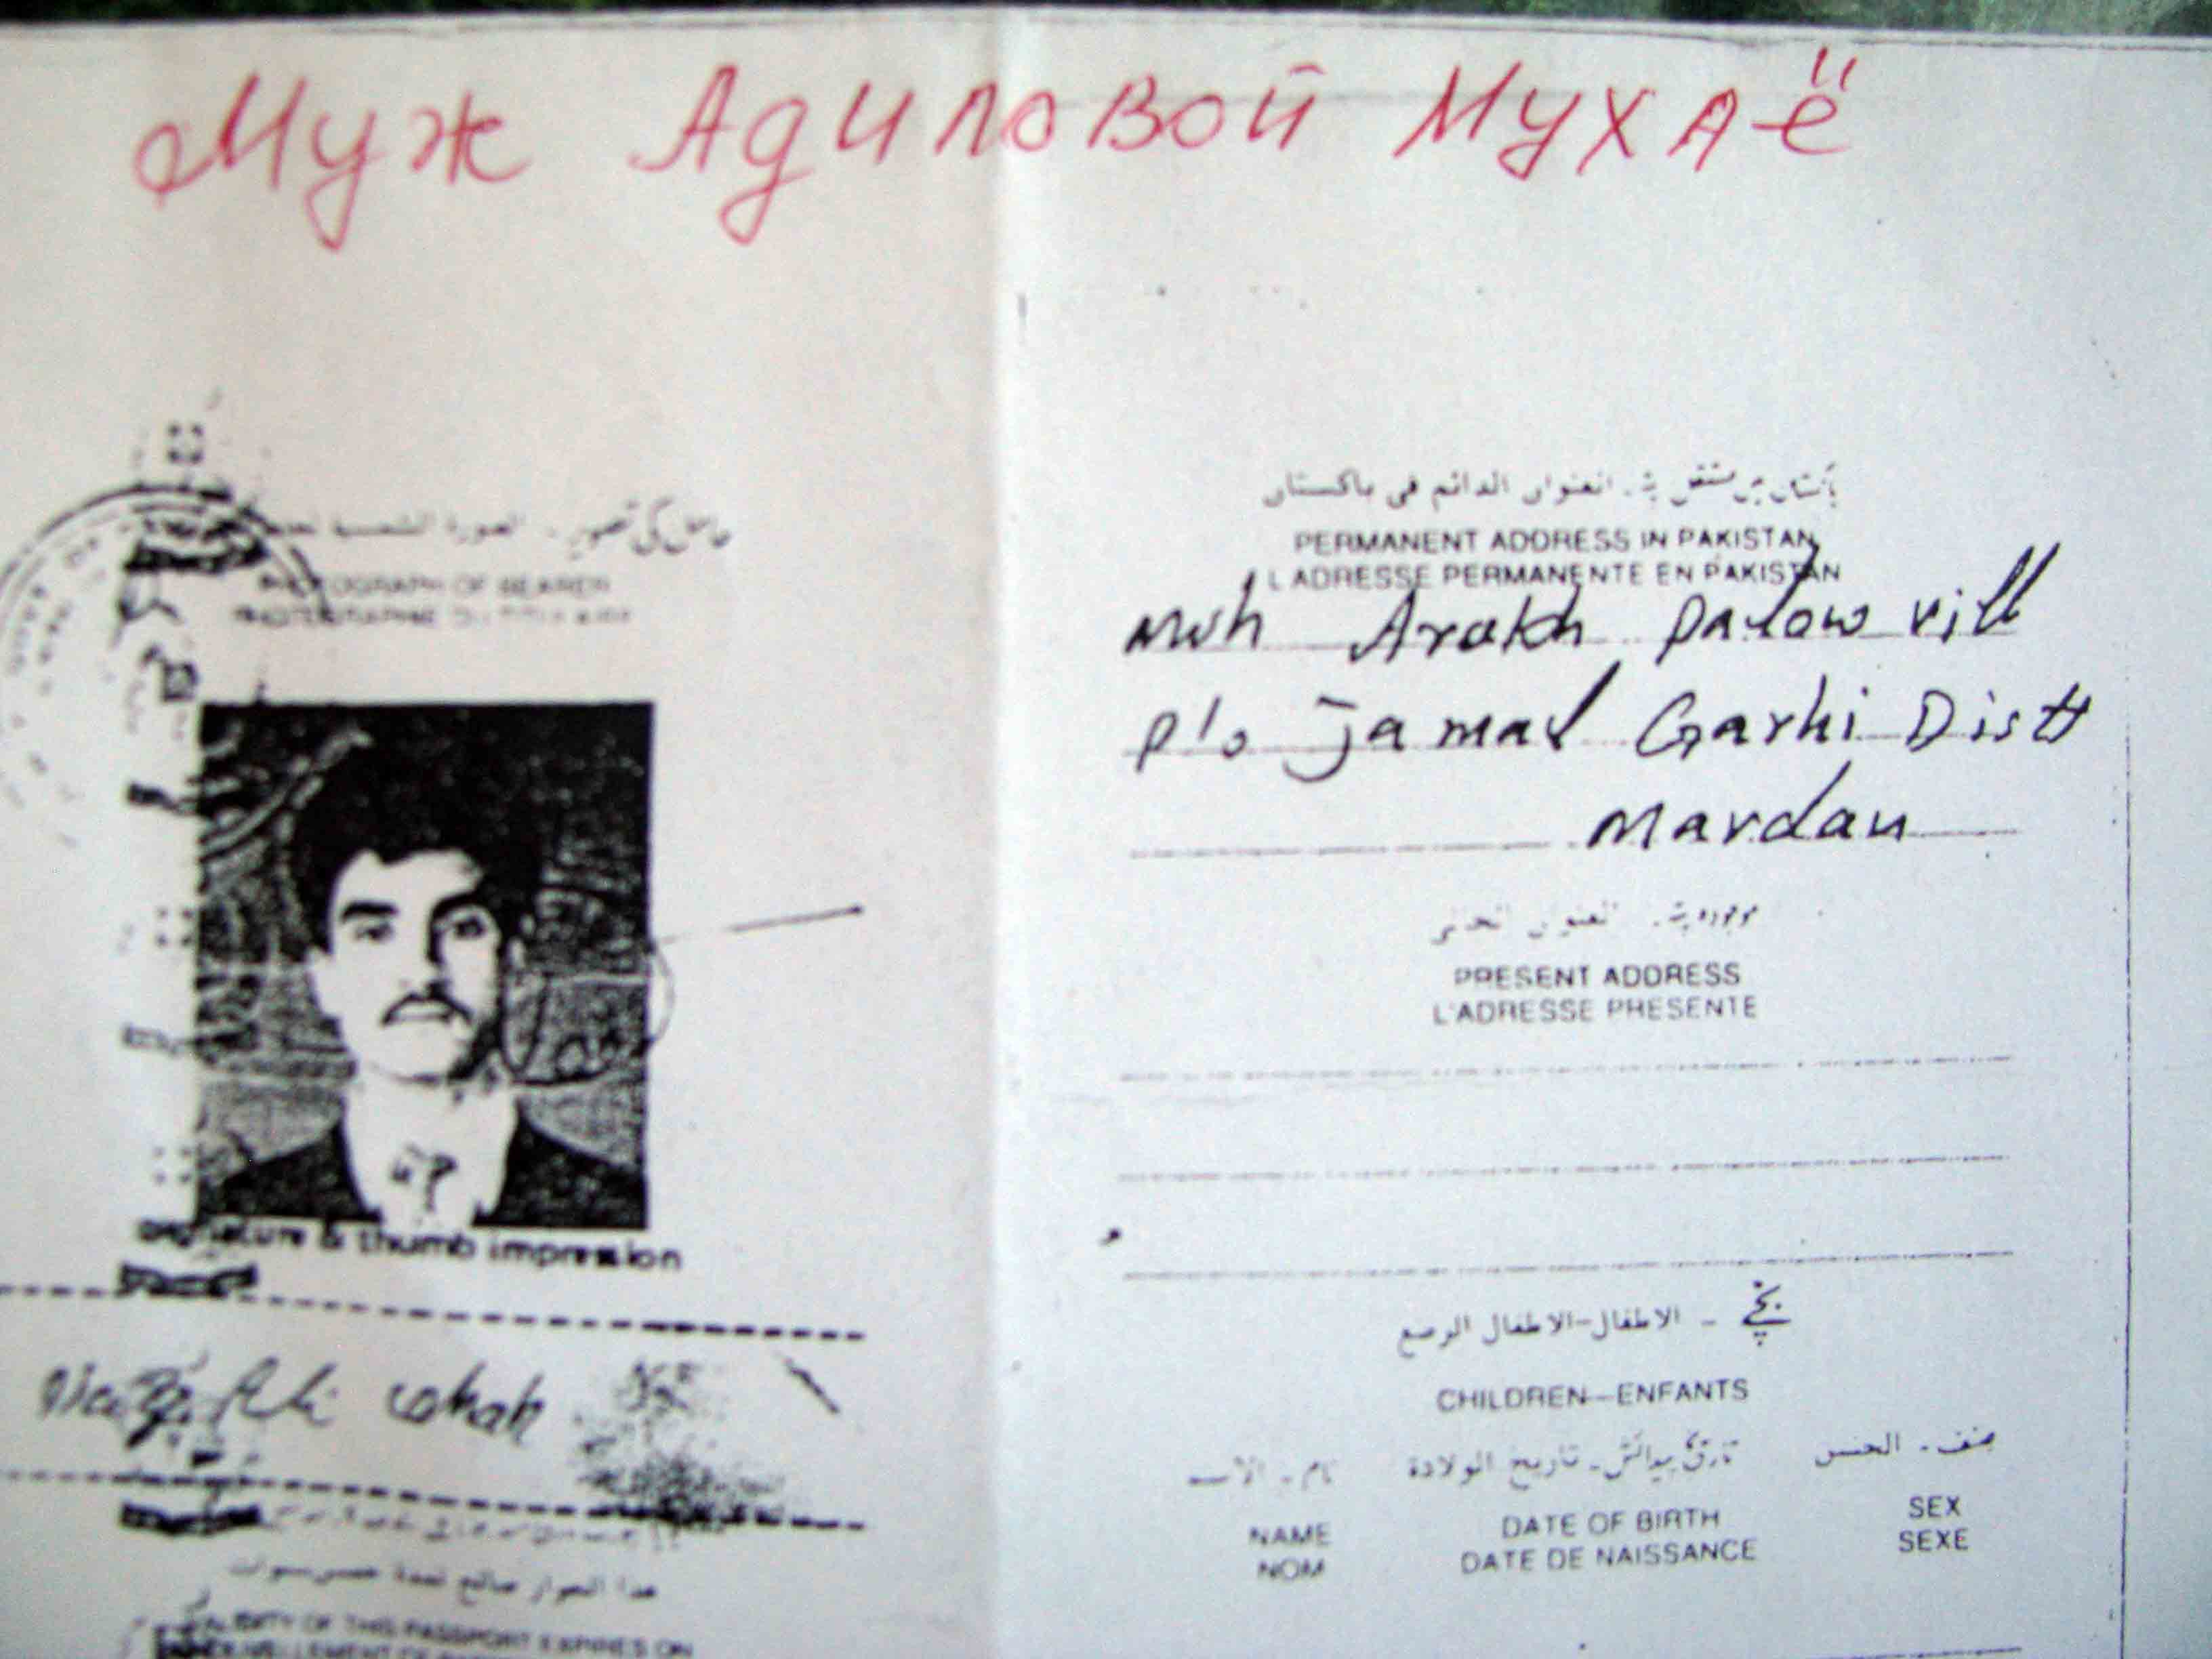 Муж Адиловой Мухаё
حامل کی تصویر - الصورة الشمسية
PHOTOGRAPH OF BEARER
signature & thumb impression
Ali
هذا الجواز صالح لمدة خمس سنوات
VALIDITY OF THIS PASSPORT EXPIRES ON
پاکستان میں مستقل پتہ - العنوان الدائم في باكستان
PERMANENT ADDRESS IN PAKISTAN
L ADRESSE PERMANENTE EN PAKISTAN
Moh Arakh Palow vill
P/o Jamal Garhi Distt
Mardan
موجودہ پتہ - العنوان الحالي
PRESENT ADDRESS
L'ADRESSE PRESENTE
بچے - الاطفال-الاطفال الرضع
CHILDREN-ENFANTS
نام - الاسم تاریخ پیدائش - تاريخ الولادة صنف - الجنس
NAME DATE OF BIRTH SEX
NOM DATE DE NAISSANCE SEXE